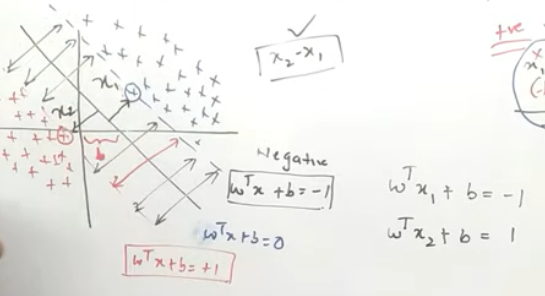 x₂-x₁
+ve
x₁
x₂
b
Negative
wᵀx + b = -1
wᵀx + b = 0
wᵀx + b = +1
wᵀx₁ + b = -1
wᵀx₂ + b = 1